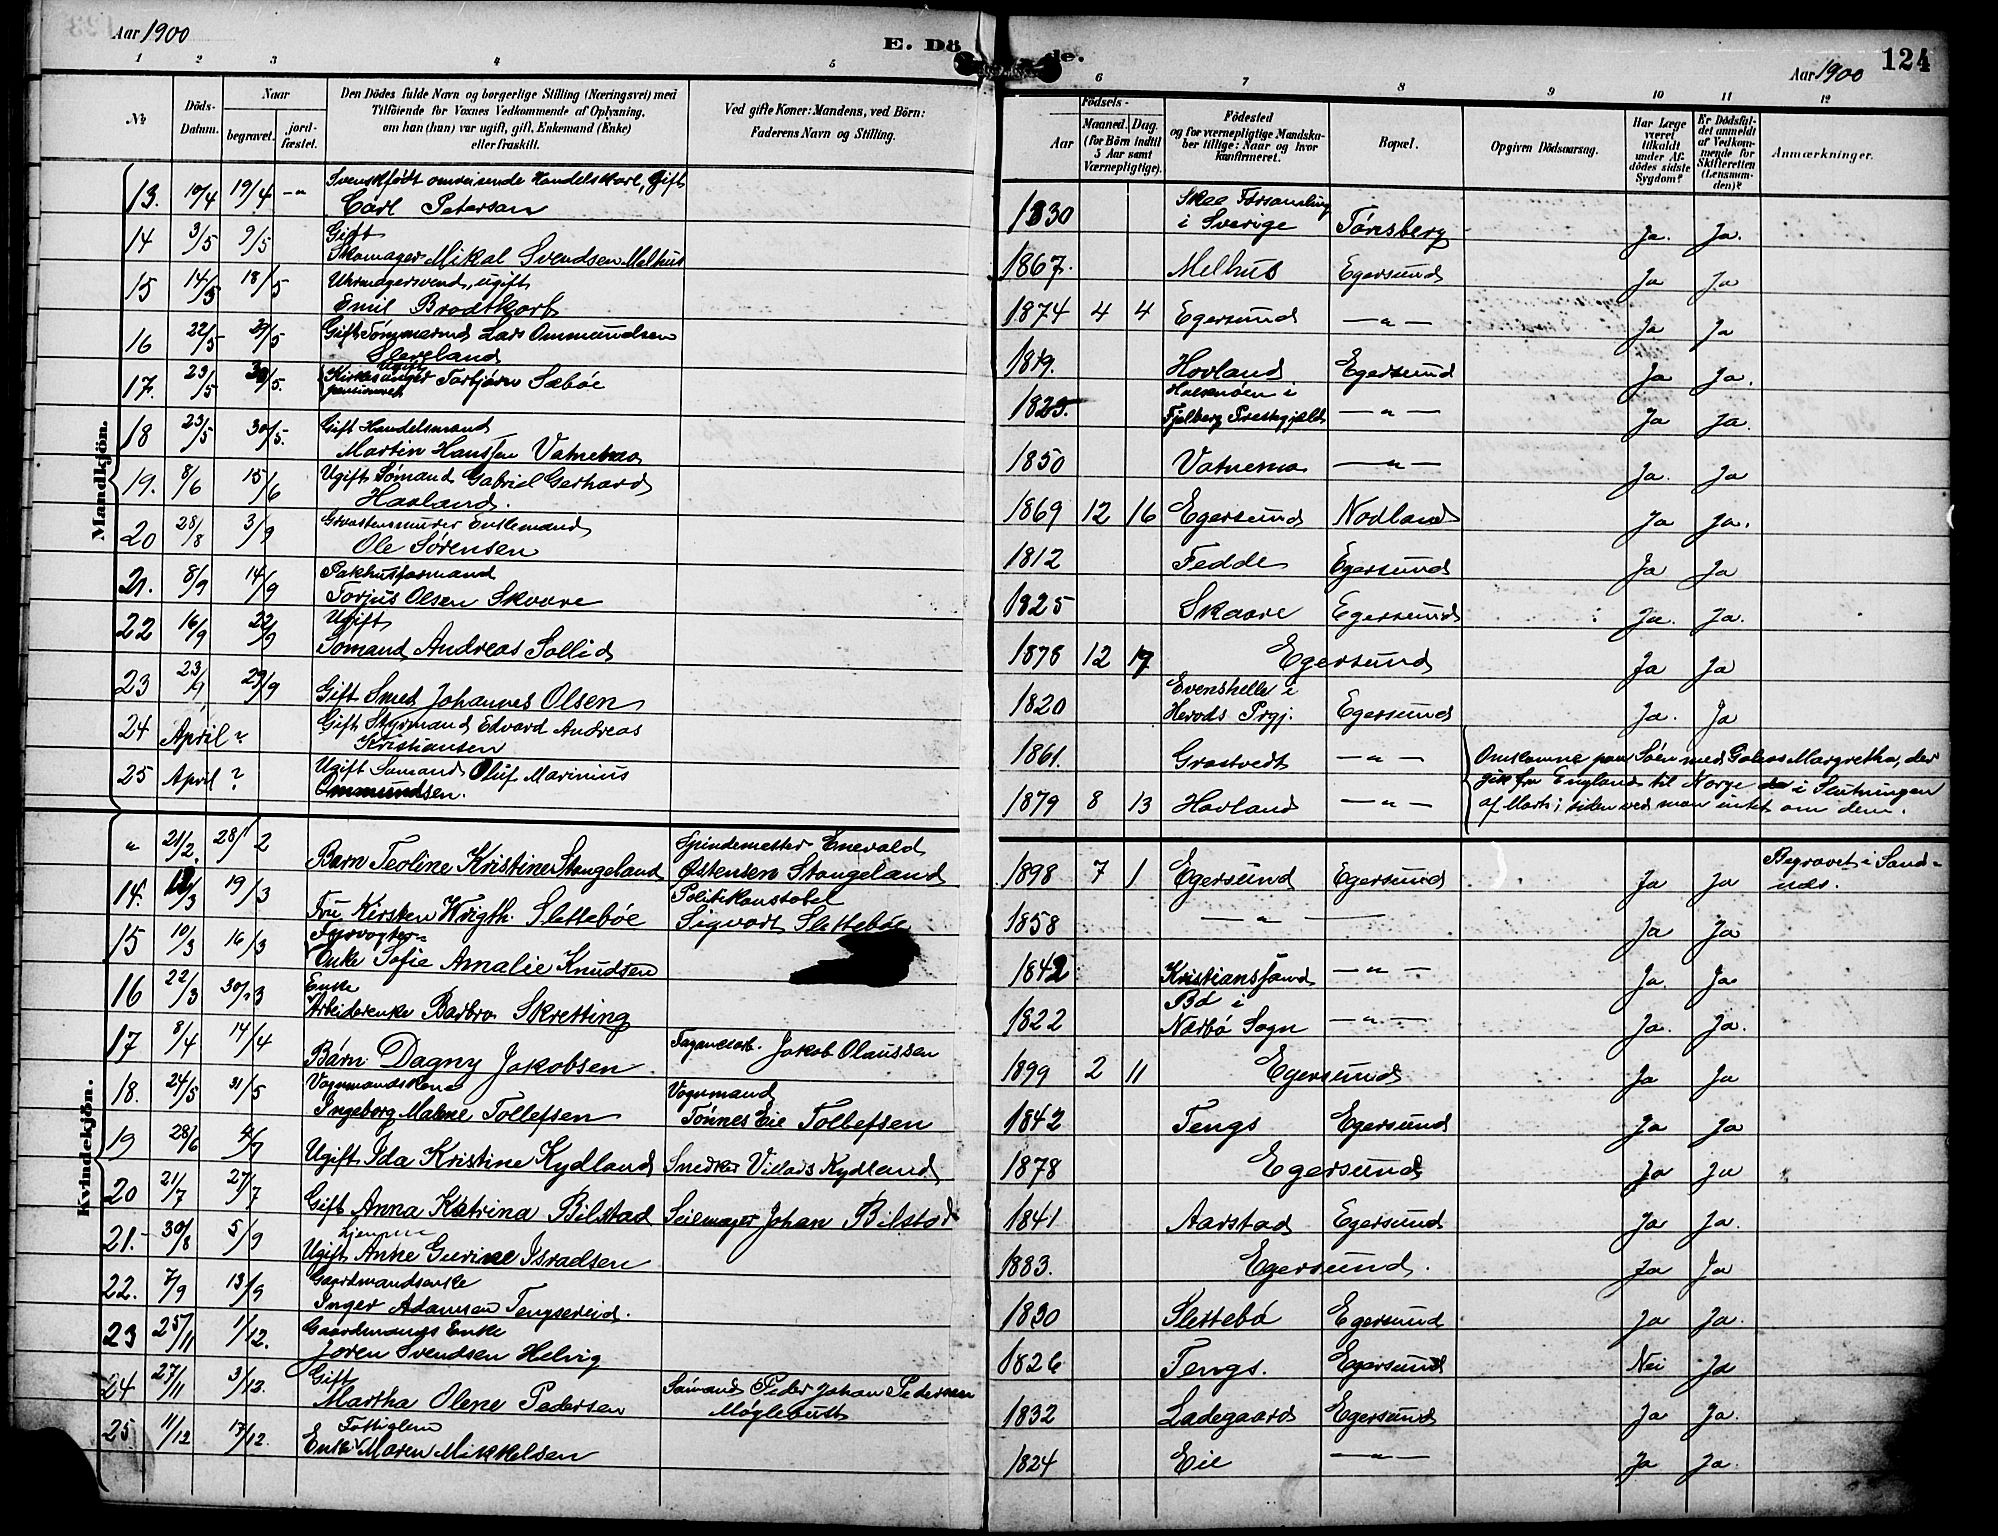 Aar 1900
E. Dö
de.
Aar 1900
124
1 2 3 4 5 6 7 8 9 10 11 12
No
Döds-Datum.
Naar
begravet.
jord-fæstet.
Den Dödes fulde Navn og borgerlige Stilling (Næringsvei) med
Tilföiende for Voxnes Vedkommende af Oplysning,
om han (hun) var ugift, gift, Enkemand (Enke)
eller fraskilt.
Ved gifte Koner: Mandens, ved Börn:
Faderens Navn og Stilling.
Födsels-
Aar
Maaned. Dag.
(for Börn indtil
5 Aar samt
Værnepligtige).
Födested
og for værnepligtige Mandska-
ber tillige: Naar og hvor
konfirmeret.
Bopæl.
Opgiven Dödsaarsag.
Har Læge
været
tilkaldt
under Af-
dödes sidste
Sygdom?
Er Dödsfal-
det anmeldt
af Vedkom-
mende for
Skifteretten
(Lensman-
den)?
Anmærkninger.
Mandkjön.
13. 10/4 19/4 -"- Svenskfödt omreisende Handelskarl, Gift
Carl Peterson 1830 Skee Forsamling
i Sverige Tønsberg Ja. Ja.
14 3/5 9/5 Gift
Skomager Mikal Svendsen Melhus 1867. Melhus Egersund Ja Ja
15 14/5 18/5 Uhrmagersvend, ugift
Emil Brodtkorb 1874 4 4 Egersund -"- Ja Ja
16 22/5 29/5 Gift Tømmermd Lars Ommundsen
Sleveland 1819. Hovland Egersund Ja Ja.
17. 23/5 30/5. Ugift
Kirkesanger Torbjørn Sæbøe
pensioneret 1825. Halsenøen i
Fjelberg Præstegjeld -"- Ja Ja.
18 23/5 30/5. Gift Handelsmand
Martin Hanssen Vatnemo 1850 Vatnemo -"- Ja. Ja
19. 8/6 15/6 Ugift Sømand Gabriel Gerhard
Havland. 1869 12 16 Egersund Nodland Ja Ja.
20 28/8 3/9 Graastensmurer Enkemand
Ole Sørensen 1812 Fedde Egersund Ja Ja
21. 8/9 14/9 Pakhusformand
Torjus Olsen Skaare 1825 Skaare Egersund Ja. Ja.
22 16/9 22/9 Ugift
Sømand Andreas Sollid 1878 12 17 Egersund Ja Ja
23 23/9 29/9 Gift Smed Johannes Olsen 1820 Evenshelle i
Herods Prgj. Egersund Ja. Ja
24 April? Gift Styrmand Edvard Andreas
Kristiansen 1861. Grastvedt -"- Omkomne paa Søen med Galeas Margretha, der
25 April? Ugift Sømand Oluf Marinius
Ommundsen. 1879 8 13 Havland -"- gik fra England til Norge i Slutningen
af Marts; siden ved man intet om dem.
Kvindekjön.
" 21/2. 28/2 Barn Teoline Kristine Stangeland Spindemester Enevald
Østensen Stangeland 1898 7 1 Egersund Egersund Ja Ja Begravet i Sand-
næs.
14. 12/3 19/3 Fru Kirsten Wrigth Slettebøe Politikonstabel
Sigvart Slettebøe 1858 -"- Ja Ja
15 10/3 16/3 Fyrvogter-
Enke Sofie Amalie Knudsen 1842 Kristianssand -"- Ja. Ja
16 22/3 30/3 Enke
Arbeiderenke Barbro Skretting 1822 Bø i
Nærbø Sogn -"- Ja. Ja.
17 8/4 14/4 Barn Dagny Jakobsen Jakob Olaussen 1899 2 11 Egersund Ja Ja
18. 24/5 31/5 Vognmandskone
Ingeborg Malene Tollefsen Vognmand
Tønnes Eie Tollefsen 1842 Tengs Egersund Ja Ja
19 28/6 4/7 Ugift Ida Kristine Kydland Snedker Villads Kydland. 1878 Egersund Ja Ja
20 21/7 27/7 Gift Anna Katrina Bilstad Seilmager Johan Bilstad 1841 Aarstad Egersund Ja Ja.
21. 30/8 5/9 Ugift Anne Gurine Israelsen 1883. Egersund. Ja Ja
22. 7/9 13/9 Gaardmandsenke
Inger Adamsen Tengsereid. 1830 Slettebø Egersund Ja Ja.
23 25/11 1/12. Gaardmands Enke
Joren Svendsen Helvig 1826 Tengs. Egersund Nei Ja
24 27/11 3/12. Gift
Martha Olene Pedersen Sømand Peder Johan Pedersen
Møglebust 1832 Ladegaard Egersund Ja Ja.
25 11/12 17/12. Fattiglem
Enke Maren Mikkelsen 1824 Eie -"- Ja Ja.